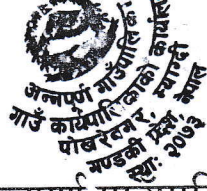 अन्नपूर्ण गाउँपालिका
गाउँ कार्यपालिकाको कार्यालय
पोखरेबगर, म्याग्दी
गण्डकी प्रदेश नेपाल
२०७३